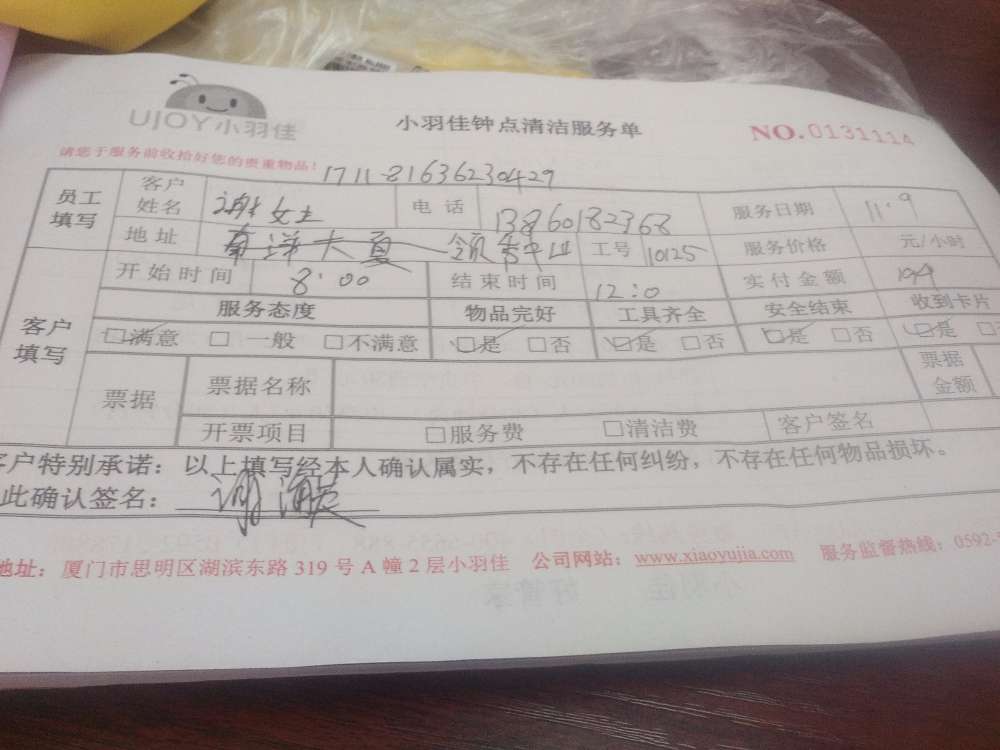 UJOY小羽佳
小羽佳钟点清洁服务单
NO.0131114
请您于服务前收拾好您的贵重物品!
1711-81636230429
员工填写 客户姓名 谢女士 电话 13860182368 服务日期 11.9
地址 南洋大夏 工号 10125 服务价格 元/小时
客户填写 开始时间 8:00 结束时间 12:0 实付金额
服务态度 物品完好 工具齐全 安全结束 收到卡片
☑满意 □一般 □不满意 ☑是 □否 ☑是 □否 ☑是 □否 ☑是 □
票据 票据名称 票据金额
开票项目 □服务费 □清洁费 客户签名
客户特别承诺：以上填写经本人确认属实，不存在任何纠纷，不存在任何物品损坏。
此确认签名：
地址：厦门市思明区湖滨东路319号A幢2层小羽佳 公司网站：www.xiaoyujia.com 服务监督热线：0592-